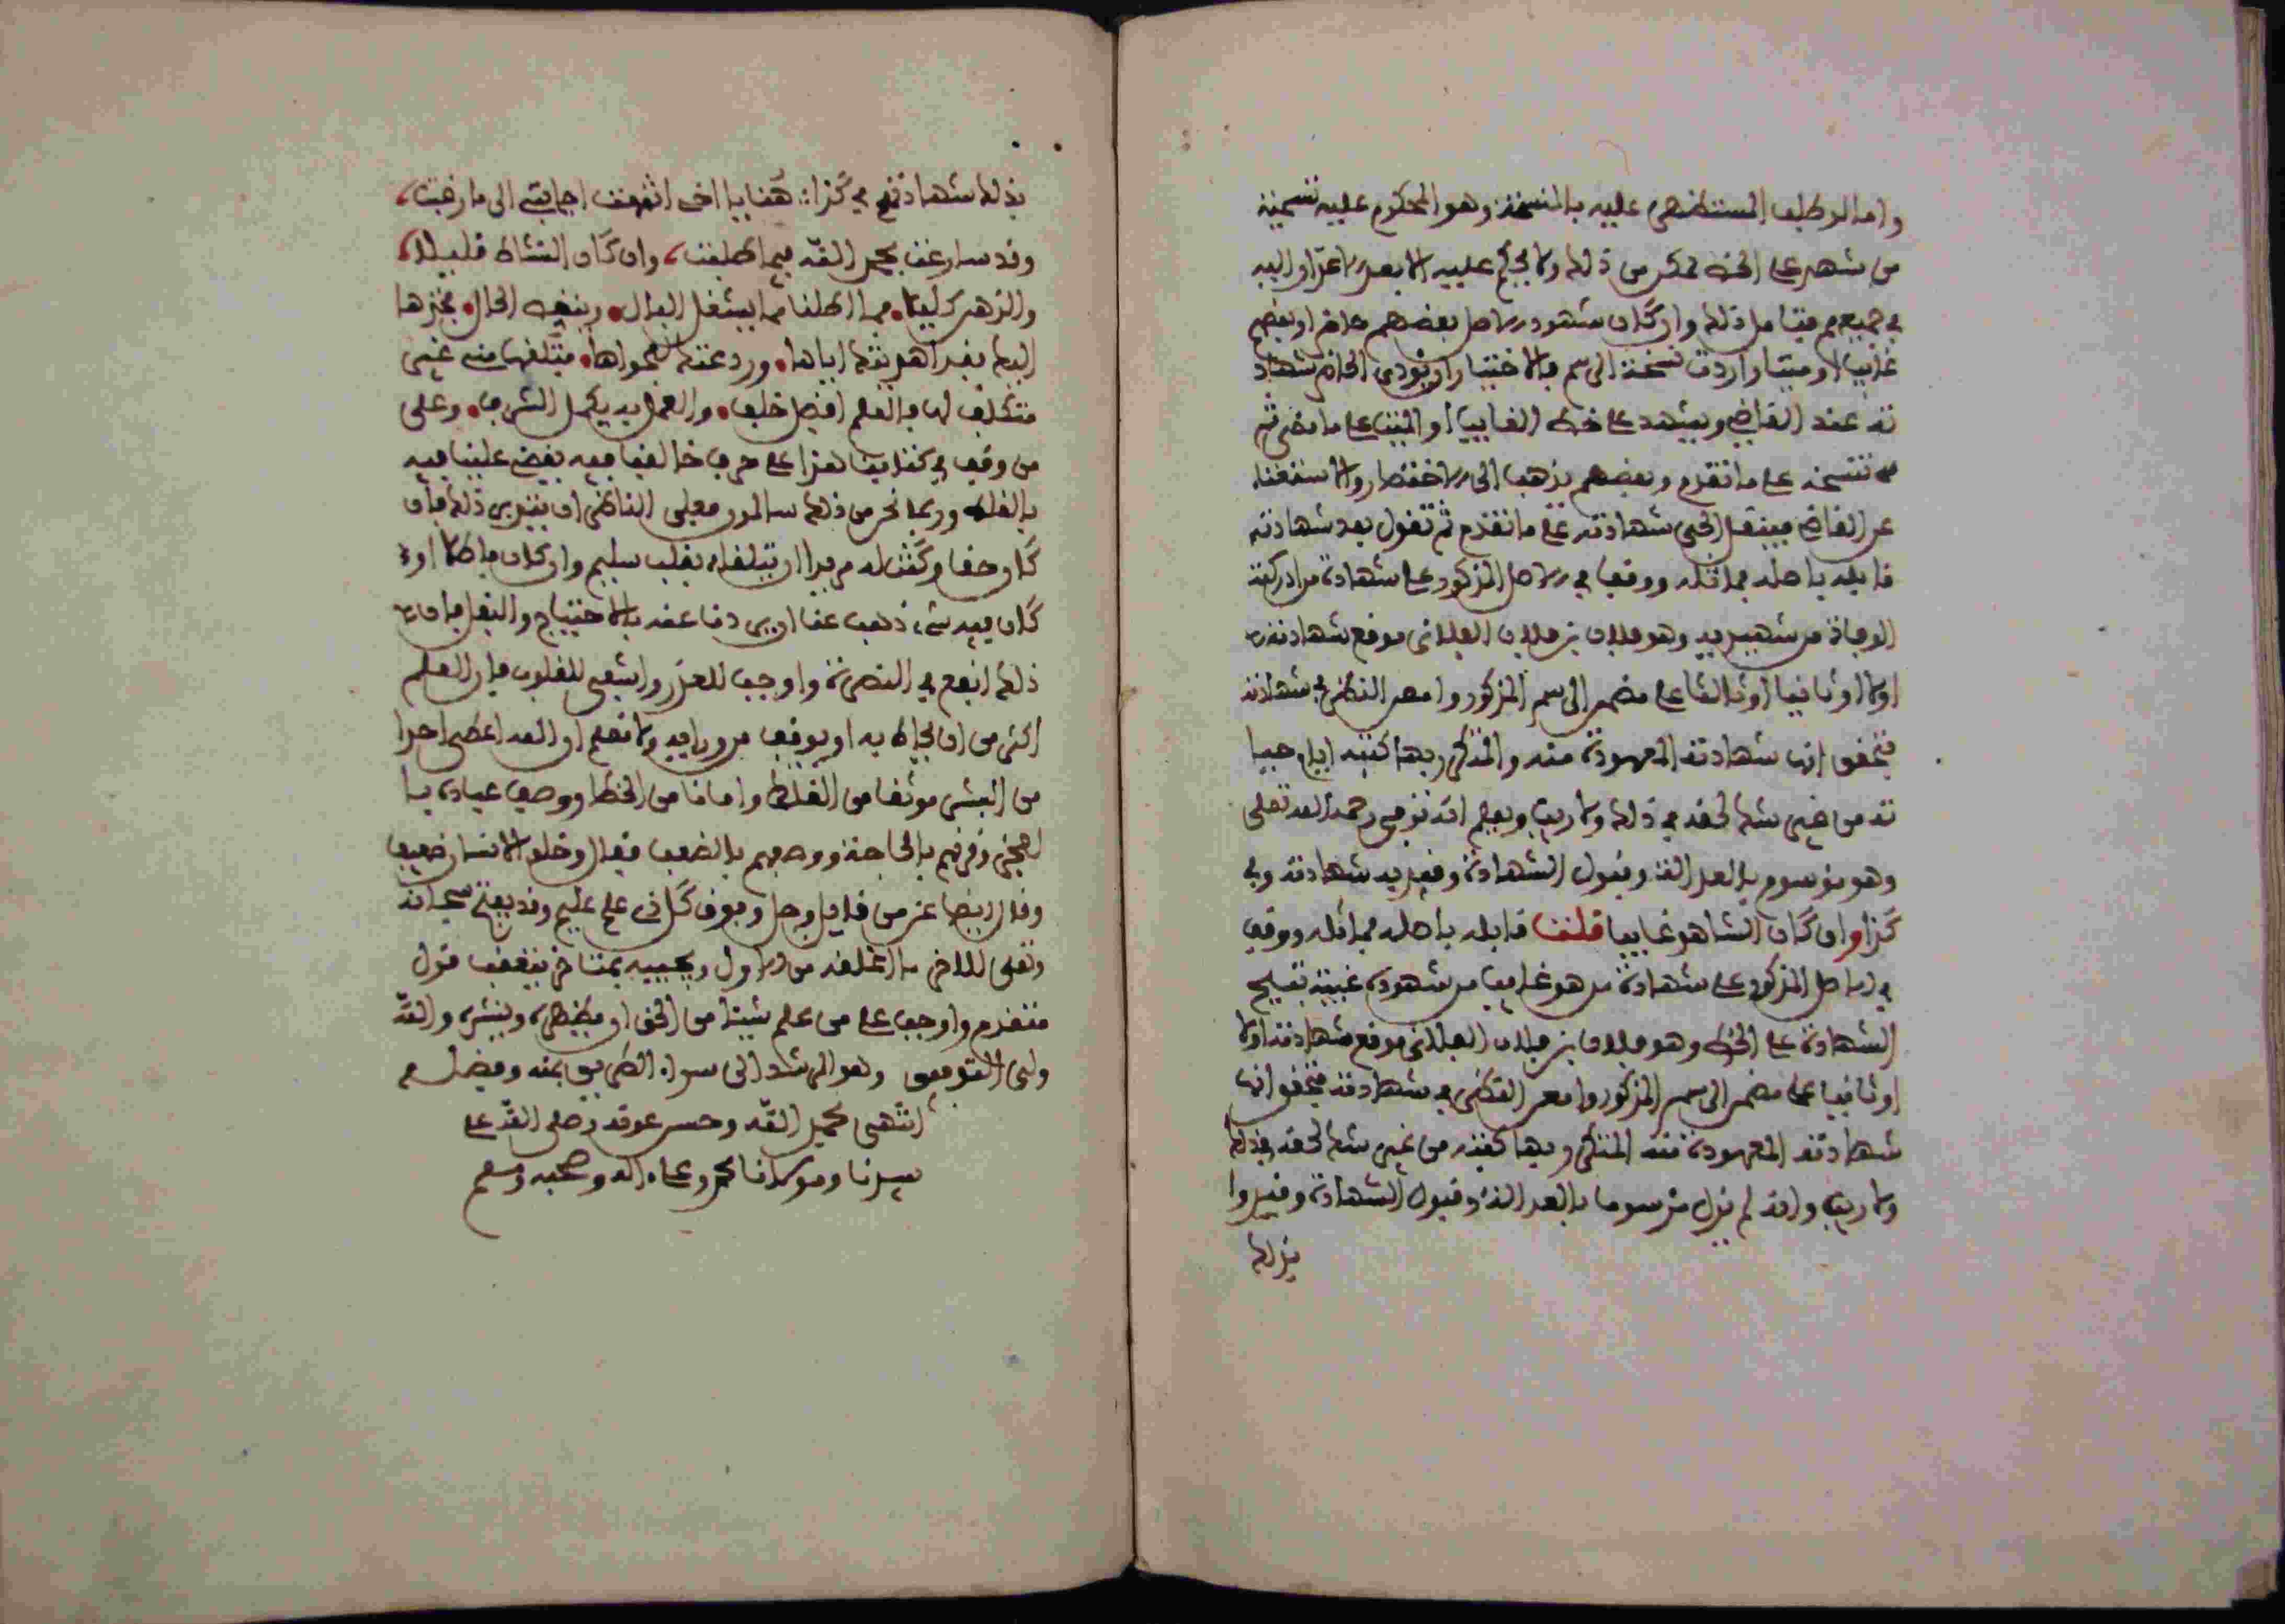 واما لو طلب المستظهر عليه بالنسخة وهو المحكوم عليه تسمية
من شهد على الخط مكن من ذلك ولا يحكم عليه الا بعد الاعذار اليه
في جميع ما ذلك وان كان شهود الاصل بعضهم حاضر او بعضهم
غايبا او ميتا واردت نسخة الرسم بالاختيار ان يودي الحاضر شهاد
ته عند القاضي ويشهد على خط الغايب او الميت على ما مضى ثم
تنسخه على ما تقدم وبعضهم يذهب الى الاختصار والاستغناء
عن القاضي فينقل الحي شهادته على ما تقدم ثم تقول بعد شهادته
قابله باصله فماثله ووقف في الاصل المذكور على شهادة من ادركته
الوفاة من شهيديه وهو فلان بن فلان الفلاني موقع شهادته
اولا او ثانيا او ثالثا على مضمن الرسم المذكور وامعن النظر في شهادته
فتحقق انها شهادته المعهودة منه والمذكور بها كتبه ايام حيا
ته من غير شك لحقه في ذلك ولا ريب ويعلم انه توفي رحمه الله تعلى
وهو موسوم بالعدالة وقبول الشهادة وقيد به شهادته وفي
كذا وان كان الشاهد غايبا قلت قابله باصله فماثله ووقف
في الاصل المذكور على شهادة من هو غايب من شهوده غيبة تبيح
الشهادة على الخط وهو فلان بن فلان الفلاني موقع شهادته اولا
او ثانيا على مضمن الرسم المذكور وامعن النظر في شهادته فتحقق انها
شهادته المعهودة منه المتكرر بها كتبه من غير شك لحقه في ذلك
ولا ريب وانه لم يزل موسوما بالعدالة وقبول الشهادة وقيدوا
بذلك
بذلك شهادتهم في كذا: هنا يا اخي انتهت اجابتي الى ما رغبت،
وقد سارعت بحمد الله فيما طلبت، وان كان النشاط قليلا،
والذهن كليلا. مما اظلنا مما يشغل البال. ويغير الحال. فخذها
اليك فقد اهديتك اياها. وردعتك فحواها. فتلقها منى غير
متكلف لها فالعلم افضل خلف. والعمل به يكمل الشرف. وعلى
من وقف في كتابنا هذا على حرف خالفنا فيه يقضي علينا فيه
بالغلط وربما نحن من ذلك سالمون فعلى الناظر ان يتدبر ذلك فان
كان حقا وكنت له مريدا ان تتلقاه بقلب سليم وان كان باطلا او
كان فيه شيء ذهب عنا ان يرد دنا عنه بالاحتياج والنقل فان
ذلك انفع في النصرة واوجب للعذر واشفى للقلوب فان العلم
اكثر من ان يحاط به او يوقف من ورايه ولا نعلم ان الله اعطى احدا
من البشر موثقا من الغلط وامانا من الخطا ووصف عباده با
لعجز وقرنهم بالحاجة ووصفهم بالضعف فقال وخلق الانسان ضعيفا
وقال ايضا عز من قايل وجل وفوق كل ذي علم عليم وقد يفتح سبحانه
وتعلى للاخر ما اغلقه من الاول ويجيبه بمتاخر يتعقب قول
متقدم واوجب على من علم شيئا من الحق ان يظهره وينشره والله
ولي التوفيق وهو المرشد الى سواء الطريق بمنه وفضله
انتهى بحمد الله وحسن عونه وصلى الله على
سيدنا ومولانا محمد وعلى اله وصحبه وسلم